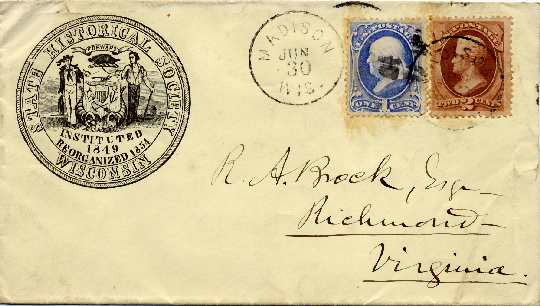 STATE HISTORICAL SOCIETY
FORWARD
INSTITUTED
1849
REORGANIZED 1854
WISCONSIN
MADISON
JUN
30
WIS.
ONE CENT
TWO CENTS
R. A. Brock, Esq
Richmond
Virginia.